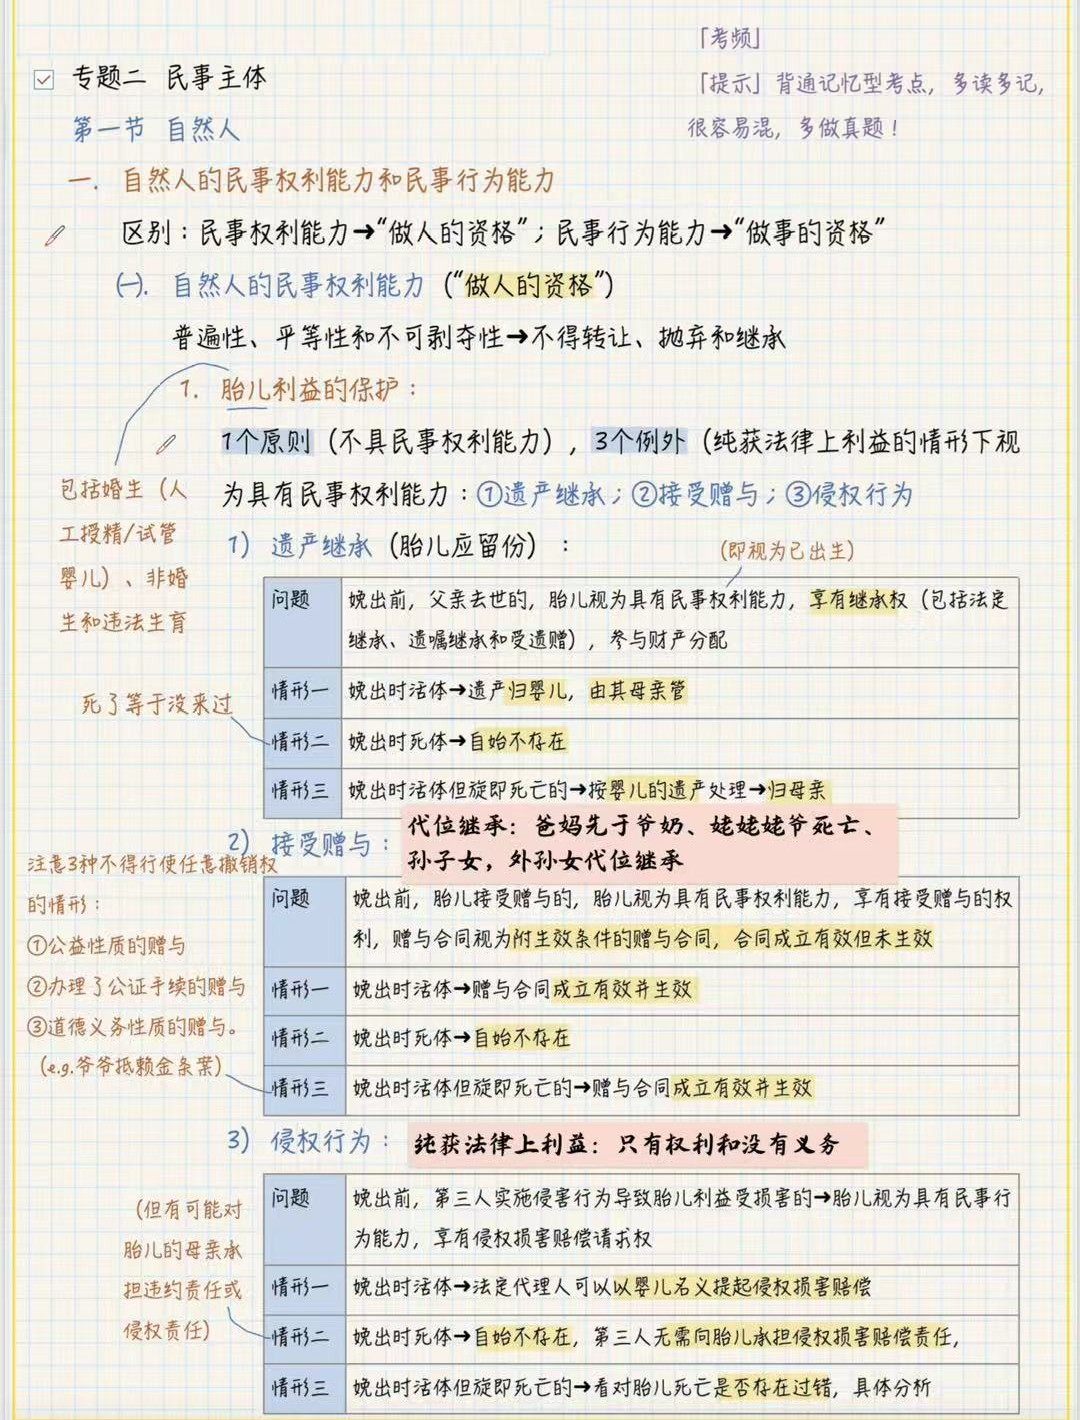 「考频」
「提示」背通记忆型考点，多读多记，
很容易混，多做真题！
专题二 民事主体
第一节 自然人
一. 自然人的民事权利能力和民事行为能力
区别：民事权利能力→“做人的资格”；民事行为能力→“做事的资格”
㈠. 自然人的民事权利能力（“做人的资格”）
普遍性、平等性和不可剥夺性→不得转让、抛弃和继承
1. 胎儿利益的保护：
1个原则（不具民事权利能力），3个例外（纯获法律上利益的情形下视
为具有民事权利能力：①遗产继承；②接受赠与；③侵权行为
包括婚生（人
工授精/试管
婴儿）、非婚
生和违法生育
1) 遗产继承（胎儿应留份）：
（即视为已出生）
问题 娩出前，父亲去世的，胎儿视为具有民事权利能力，享有继承权（包括法定
继承、遗嘱继承和受遗赠），参与财产分配
情形一 娩出时活体→遗产归婴儿，由其母亲管
死了等于没来过
情形二 娩出时死体→自始不存在
情形三 娩出时活体但旋即死亡的→按婴儿的遗产处理→归母亲
2) 接受赠与：
代位继承：爸妈先于爷奶、姥姥姥爷死亡、
孙子女，外孙女代位继承
注意3种不得行使任意撤销权
的情形：
①公益性质的赠与
②办理了公证手续的赠与
③道德义务性质的赠与。
（e.g.爷爷抵赖金条案）
问题 娩出前，胎儿接受赠与的，胎儿视为具有民事权利能力，享有接受赠与的权
利，赠与合同视为附生效条件的赠与合同，合同成立有效但未生效
情形一 娩出时活体→赠与合同成立有效并生效
情形二 娩出时死体→自始不存在
情形三 娩出时活体但旋即死亡的→赠与合同成立有效并生效
3) 侵权行为：
纯获法律上利益：只有权利和没有义务
问题 娩出前，第三人实施侵害行为导致胎儿利益受损害的→胎儿视为具有民事行
为能力，享有侵权损害赔偿请求权
（但有可能对
胎儿的母亲承
担违约责任或
侵权责任）
情形一 娩出时活体→法定代理人可以以婴儿名义提起侵权损害赔偿
情形二 娩出时死体→自始不存在，第三人无需向胎儿承担侵权损害赔偿责任，
情形三 娩出时活体但旋即死亡的→看对胎儿死亡是否存在过错，具体分析